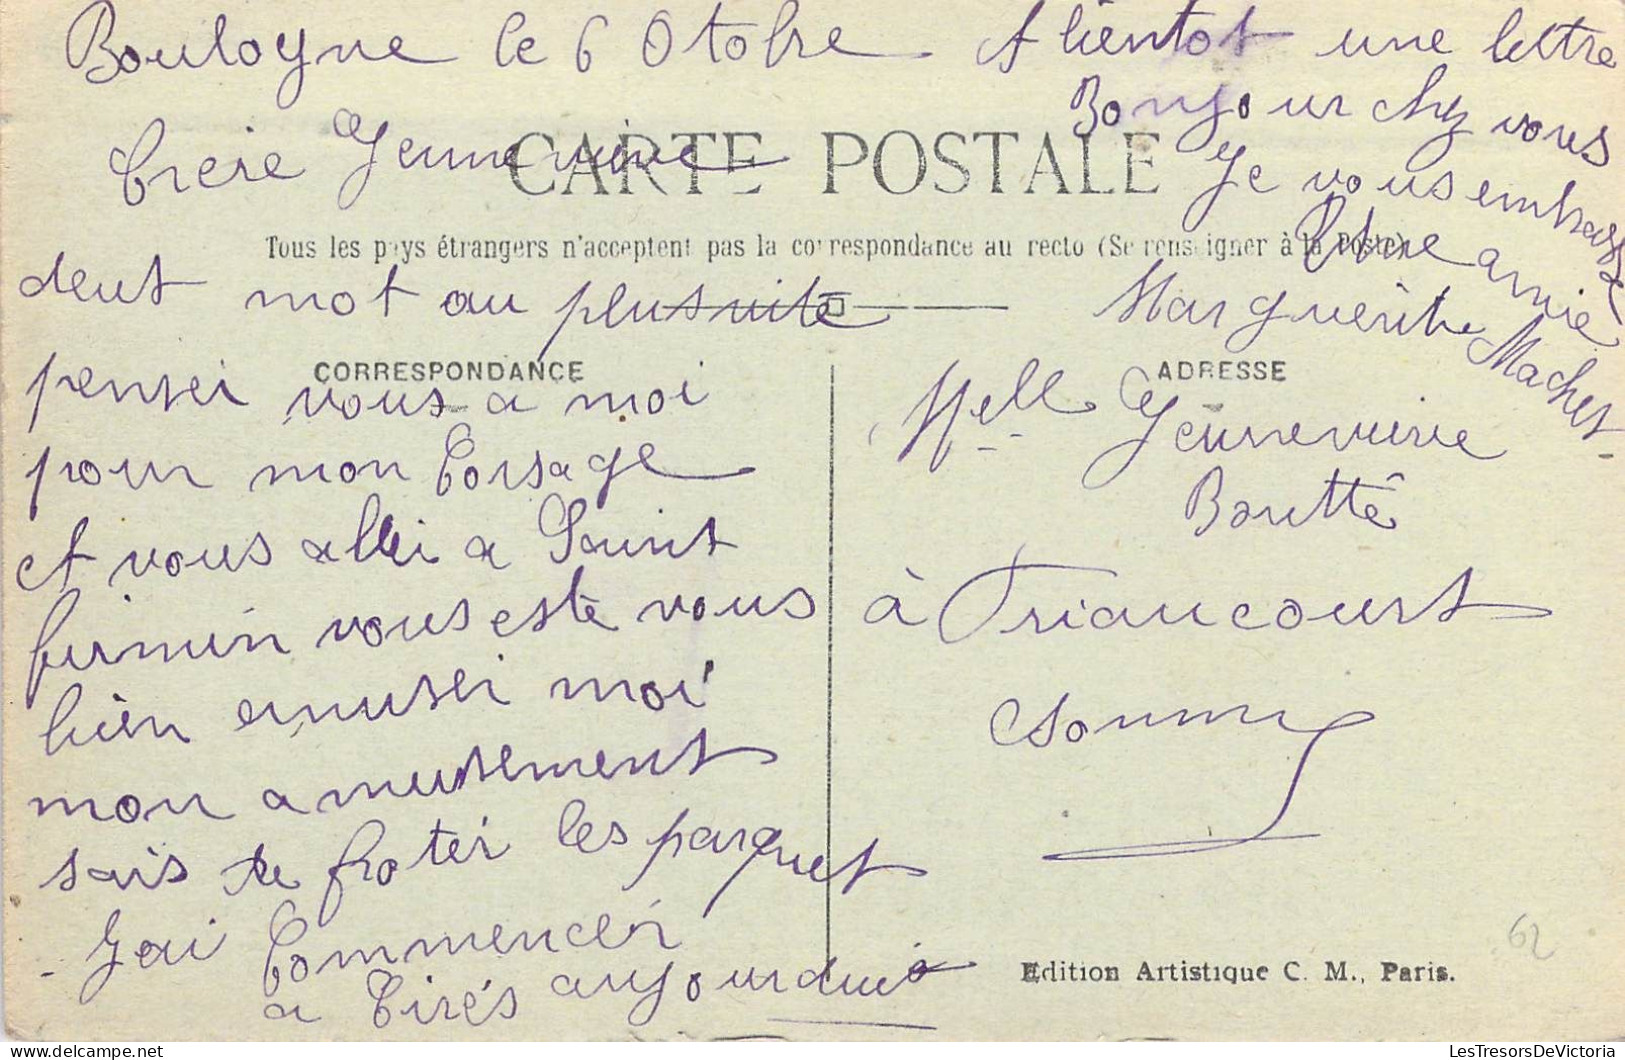 Boulogne le 6 Otobre
Chère Jenneviève
CARTE POSTALE
Tous les pays étrangers n'acceptent pas la correspondance au recto (Se renseigner à la Poste)
deut mot au plus vite
CORRESPONDANCE
penser vous a moi
pour mon Corsage
et vous aller a Saint
firmin vous este vous
bien emuser moi
mon amusement
sais de froter les parquet
Jai Commencer
a Cirés aujourdui
A bientot une lettre
Bonjour chez vous
Je vous embrasse
Votre amie
Marguerite Machet
ADRESSE
Melle Jennevieve
Boutté
à Friaucourt
Somme
62
Edition Artistique C. M., Paris.
LesTresorsDeVictoria